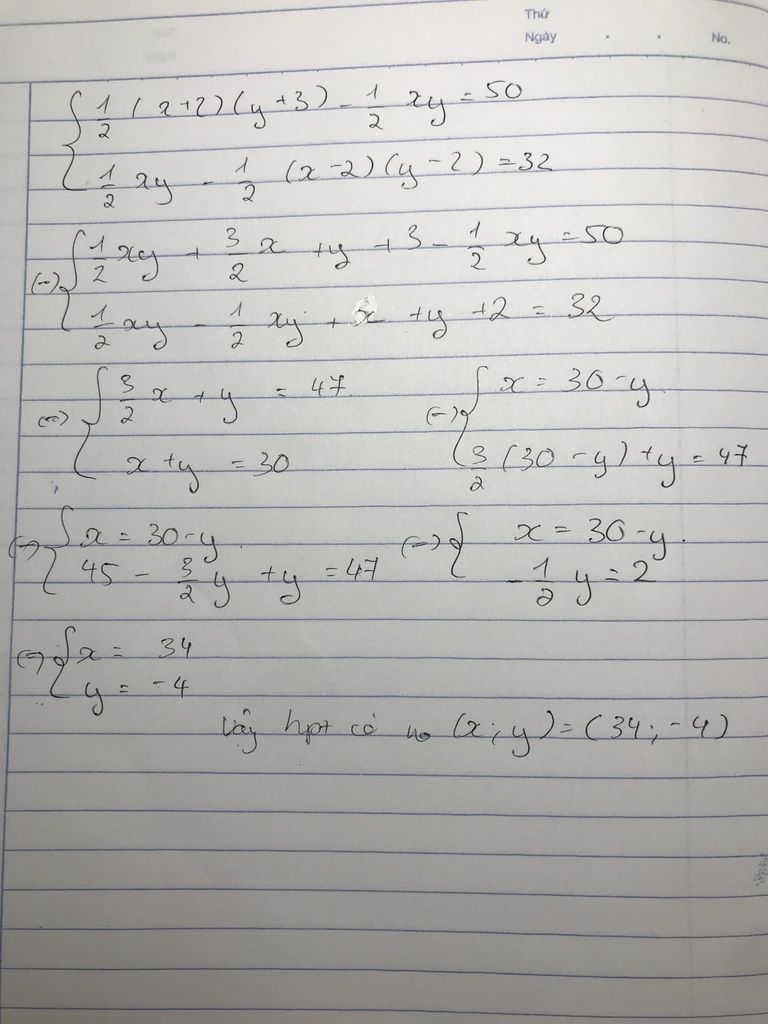 Thứ
Ngày . . No.
{ 1/2 (x+2)(y+3) - 1/2 xy = 50
1/2 xy - 1/2 (x-2)(y-2) = 32
(=) { 1/2 xy + 3/2 x + y + 3 - 1/2 xy = 50
1/2 xy - 1/2 xy + x + y + 2 = 32
(=) { 3/2 x + y = 47
x + y = 30
(=) { x = 30 - y
3/2 (30 - y) + y = 47
(=) { x = 30 - y.
45 - 3/2 y + y = 47
(=) { x = 30 - y.
- 1/2 y = 2
(=) { x = 34
y = -4
Vậy hpt có no (x; y) = (34; -4)